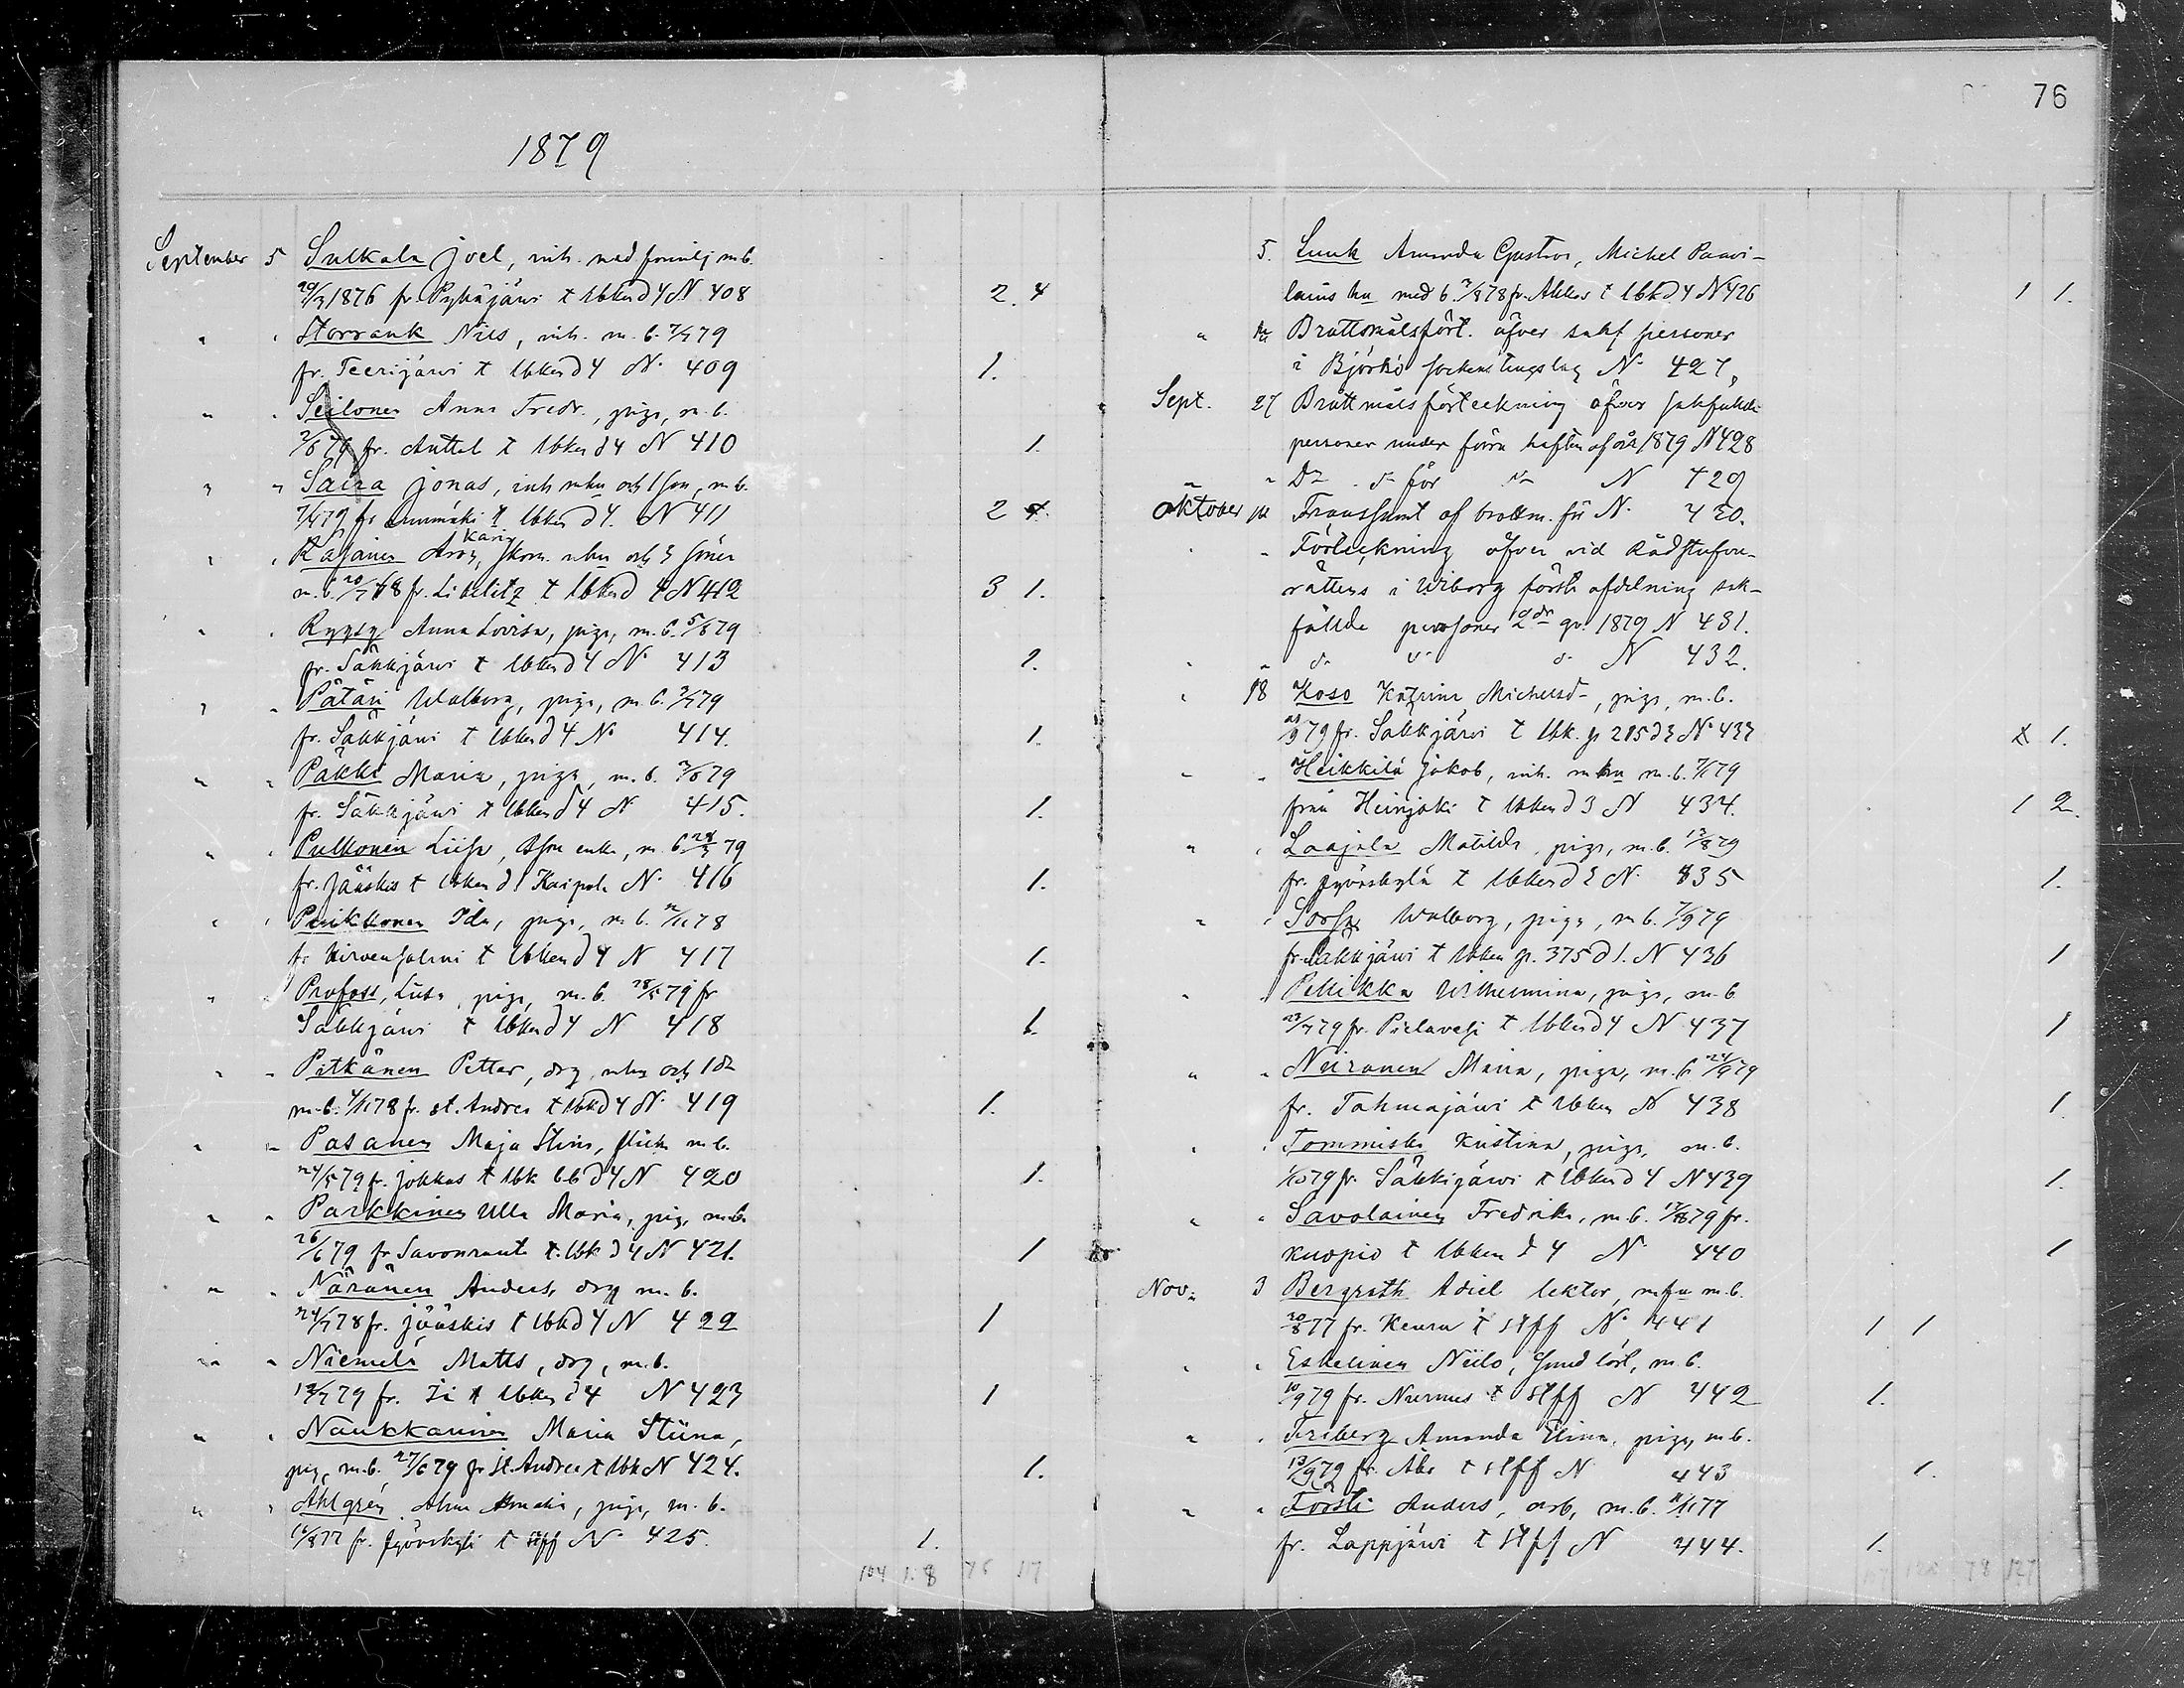 1879
September 5 Sulkala Joel, inh. med familj m.b.
29/3 1876 fr. Pyhäjärvi t lbken d 4 N 408 2. 4
" " Storrank Nils, inh. m. b. 7/7 79
fr. Teerijärvi t lbken d 4 N. 409 1.
" " Seilonen Anna Fredr., piga, m. b.
2/6 79 fr. Anttol t lbken d 4 N 410 1.
" " Saira Jonas, inh mhu och 1 son, m b.
7/4 79 fr t lbken d 4. N 411 2
" " Kasainen Aron, Karin skom. mhu och 3 söner
m. b. 20/7 78 fr. Libelitz t lbken d 4 N 412 3 1.
" " Ryysy Anna Lovisa, piga, m. b. 5/8 79
fr. Säkkjärvi t lbken d 4 N. 413 1.
" " Pätäri Walborg, piga, m. b. 7/7 79
fr. Säkkjärvi t lbken d 4 No 414. 1.
" " Päkki Maria, piga, m. b. 7/6 79
fr. Säkkjärvi t lbken d 4 N 415. 1.
" " Pulkonen Liisa, enka, m. b. 28/3 79
fr. Jääskis t lbken d 1 Karpola N. 416 1.
" " Puikkonen Ida, piga, m. b. 11/11 78
fr Hirvensalmi t lbken d 4 N 417 1.
" " Profoss, Liisa, piga, m. b. 28/5 79 fr
Säkkjärvi t lbken d 4 N 418 1.
" " Pitkänen Petter, drg mhu och 1 dr
m. b. 4/11 78 fr. St. Andrea t lbk d 4 N. 419 1.
" " Pasanen Maja Stina, flicka m b.
24/5 79 fr. Jokkas t lbk bb d 4 N 420 1.
" " Parkkinen Ulla Maria, pig, m.b.
26/6 79 fr Savonranta t. lbk d 4 N 421. 1
" " Näränen Anders, drg m. b.
24/7 78 fr. Jääskis t lbk d 4 N 422 1
" " Niemelä Matts, drg, m. b.
13/7 79 fr. Ii t lbken d 4 N 423 1
" " Naukkarinen Maria Stiina,
pig, m. b. 27/6 79 fr St. Andrea t lbk N 424. 1.
" " Ahlgrén Alma Amalia, piga, m. b.
16/8 77 fr. Jyväskyla t stff N. 425. 1.
104 1.8 76 117
76
5. Luuk Amanda Gustava, Michel Paavi-
lains hu med b. 7/8 78 fr. Akkas t lbk d 4 N 426 1 1.
" Brottmålsfört. öfver sakf personer
i Björkö sockens tingslag N. 427,
Sept. 27 Brottmålsförteckning öfver sakfällde
personer under förra hälften af år 1879 N 428
" " Do do för do N 429
Oktober Transsumt af brottm. för N. 430.
" " Förteckning öfver vid Rådstufvu-
rättens i Wiborg första afdelning sak-
fällde personer 2dra qv. 1879 N 431.
" " do do do N 432.
" 18 Koso Katrina Michelsd., piga, m. b.
23/9 79 fr. Säkkjärvi t lbk. p 215 d 3 No 433 1.
" " Heikkilä Jakob, inh. m hu m. b. 7/1 79
från Heinjoki t lbken d 3 N 434. 1 2.
" " Laajala Matilda, piga, m. b. 13/8 79
fr. Jyväskylä t lbken d 2 N. 435 1.
" " Sorsa Walborg, piga, m b. 7/9 79
fr. Säkkjärvi t lbken p. 375 d 1. N 436 1
" " Pellikka Wilhelmina, piga, m. b
23/7 79 fr. Pielavesi t lbken d 4 N 437 1
" " Niiranen Maria, piga, m. b 24/9 79
fr. Tohmajärvi t lbken N 438 1.
" " Tommiska Kristina, piga, m. b.
1/10 79 fr. Säkkijärvi t lbken d 4 N 439 1.
" " Savolainen Fredrika, m. b. 17/8 79 fr.
Kuopio t lbken d 4 N. 440 1
Nov. 3 Bergroth Adiel lektor, m fru m. b.
20/8 77 fr. Keuru t stff No 441 1 1
" " Eskelinen Niilo, smed lärl, m. b.
10/9 79 fr. Nurmes t stff N 442 1.
" " Friberg Amanda Elina, piga, m b.
13/9 79 fr. Åbo t stff N 443 1.
" " Forsti Anders, arb, m. b. 11/11 77
fr. Lappjärvi t stff N 444. 1.
107 78 127